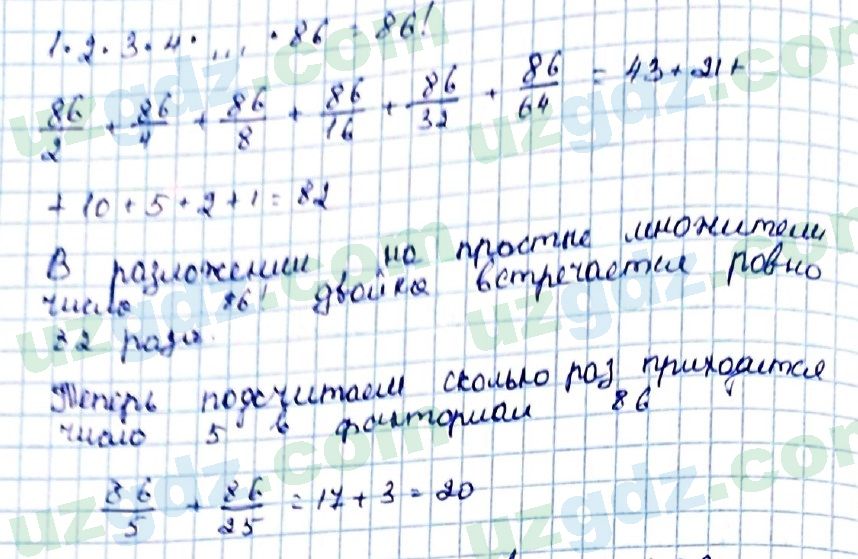 1·2·3·4·...·86 = 86!
86/2 + 86/4 + 86/8 + 86/16 + 86/32 + 86/64 = 43 + 21 +
+ 10 + 5 + 2 + 1 = 82
В разложении на простые множители
число 86! двойка встречается ровно
82 раза.
Теперь подсчитаем сколько раз приходится
число 5 в факториал 86
86/5 + 86/25 = 17 + 3 = 20
uzgdz.com